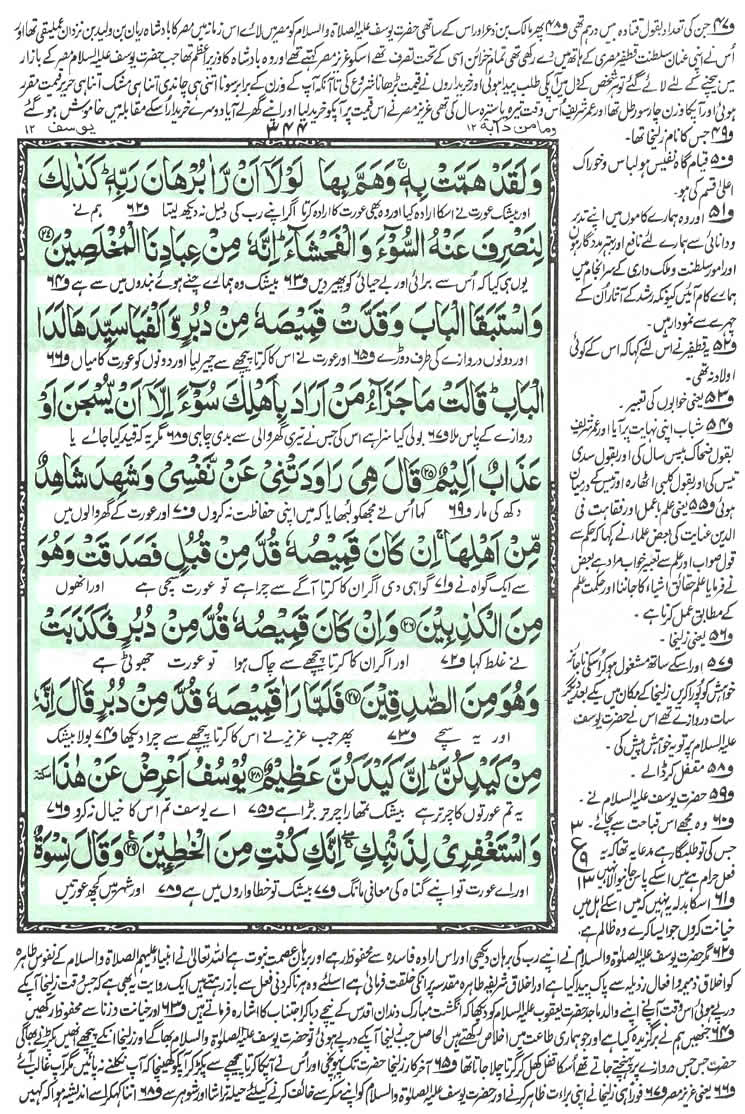 و۴۷ جن کی تعداد بقول قتادہ بیس درہم تھی و۴۸ پھر مالک بن ذعر اور اس کے ساتھی حضرت یوسف علیہ الصلاۃ والسلام کو مصر میں لائے اس زمانے میں مصر کا بادشاہ ریان بن ولید بن نزدان عملیقی تھا اور
اُس نے اپنی عنان سلطنت قطفیر مصری کے ہاتھ میں دے رکھی تھی تمام خزائن اسی کے تحت تصرف تھے اسکو عزیز مصر کہتے تھے اور وہ بادشاہ کا وزیر اعظم تھا جب حضرت یوسف علیہ السلام مصر کے بازار
میں بیچنے کے لئے لائے گئے تو ہر شخص کے دل میں آپکی طلب پیدا ہوئی اور خریداروں نے قیمت بڑھانا شروع کی تا آنکہ آپ کے وزن کے برابر سونا اتنی ہی چاندی اتنا ہی مشک اتنا ہی حریر قیمت مقرر
ہوئی اور آپکا وزن چار سو رطل تھا اور عمر شریف اس وقت تیرہ یا سترہ سال کی تھی عزیز مصر نے اس قیمت پر آپکو خرید لیا اور اپنے گھر لے آیا دوسرے خریدار اسکے مقابلہ میں خاموش ہو گئے
وما من دآبة ۱۲
۳۴۴
یوسف ۱۲
و۴۹ جس کا نام زلیخا تھا۔
و۵۰ قیام گاہ نفیس ہو لباس و خوراک
اعلیٰ قسم کی ہو۔
و۵۱ اور وہ ہمارے کاموں میں اپنے تدبر
و دانائی سے ہمارے لئے نافع اور بہتر مددگار ہوں
اور امور سلطنت و ملک داری کے سرانجام میں
ہمارے کام آئیں کیونکہ رشد کے آثار ان کے
چہرے سے نمودار ہیں۔
و۵۲ یہ قطفیر نے اس لئے کہا کہ اس کے کوئی
اولاد نہ تھی۔
و۵۳ یعنی خوابوں کی تعبیر۔
و۵۴ شباب اپنی نہایت پر آیا اور عمر شریف
بقول ضحاک بیس سال کی اور بقول سدی
تیس کی اور بقول کلبی اٹھارہ اور تیس کے درمیان
ہوئی و۵۵ یعنی علم با عمل اور نقاہت فی
الدین عنایت کی بعض علماء نے کہا کہ حکم سے
قول صواب اور علم سے تعبیر خواب مراد ہے بعض
نے فرمایا علم حقائق اشیاء کا جاننا اور حکمت علم
کے مطابق عمل کرنا ہے۔
و۵۶ یعنی زلیخا۔
و۵۷ اور اسکے ساتھ مشغول ہو کر اسکی ناجائز
خواہش کو پورا کریں زلیخا کے مکان میں یکے بعد دیگرے
سات دروازے تھے اس نے حضرت یوسف
علیہ السلام پر تو یہ خواہش پیش کی۔
و۵۸ مقفل کر ڈالے۔
و۵۹ حضرت یوسف علیہ السلام نے۔
و۶۰ وہ مجھے اس قباحت سے بچائے
جس کی تو طلبگار ہے مدعا یہ تھا کہ یہ
فعل حرام ہے میں اسکے پاس جانیوالا نہیں
و۶۱ اسکا بدلہ یہ نہیں کہ میں اسکے اہل میں
خیانت کروں جو ایسا کرے وہ ظالم ہے۔
۳
ع
۹
۱۳
وَلَقَدْ هَمَّتْ بِهٖ ۚ وَهَمَّ بِهَا لَوْلَاۤ اَنْ رَّاٰ بُرْهَانَ رَبِّهٖ ؕ كَذٰلِكَ
اور بیشک عورت نے اسکا ارادہ کیا اور وہ بھی عورت کا ارادہ کرتا اگر اپنے رب کی دلیل نہ دیکھ لیتا و۶۲ ہم نے
لِنَصْرِفَ عَنْهُ السُّوْٓءَ وَالْفَحْشَآءَ ؕ اِنَّهٗ مِنْ عِبَادِنَا الْمُخْلَصِيْنَ ﴿۲۴﴾
یوں ہی کیا کہ اُس سے برائی اور بے حیائی کو پھیر دیں و۶۳ بیشک وہ ہمارے چنے ہوئے بندوں میں سے ہے و۶۴
وَاسْتَبَقَا الْبَابَ وَقَدَّتْ قَمِيْصَهٗ مِنْ دُبُرٍ وَّاَلْفَيَا سَيِّدَهَا لَدَا
اور دونوں دروازے کی طرف دوڑے و۶۵ اور عورت نے اس کا کرتا پیچھے سے چیر لیا اور دونوں کو عورت کا میاں و۶۶
الْبَابِ ؕ قَالَتْ مَا جَزَآءُ مَنْ اَرَادَ بِاَهْلِكَ سُوْٓءًا اِلَّاۤ اَنْ يُّسْجَنَ اَوْ
دروازے کے پاس ملا و۶۷ بولی کیا سزا ہے اس کی جس نے تیری گھر والی سے بدی چاہی و۶۸ مگر یہ کہ قید کیا جائے یا
عَذَابٌ اَلِيْمٌ ﴿۲۵﴾ قَالَ هِىَ رَاوَدَتْنِىْ عَنْ نَّفْسِىْ وَشَهِدَ شَاهِدٌ
دکھ کی مار و۶۹ کہا اُس نے مجھکو لبھایا کہ میں اپنی حفاظت نہ کروں و۷۰ اور عورت کے گھر والوں میں
مِّنْ اَهْلِهَا ۚ اِنْ كَانَ قَمِيْصُهٗ قُدَّ مِنْ قُبُلٍ فَصَدَقَتْ وَهُوَ
سے ایک گواہ نے و۷۱ گواہی دی اگر ان کا کرتا آگے سے چرا ہے تو عورت سچی ہے اور انھوں
مِنَ الْكٰذِبِيْنَ ﴿۲۶﴾ وَاِنْ كَانَ قَمِيْصُهٗ قُدَّ مِنْ دُبُرٍ فَكَذَبَتْ
نے غلط کہا و۷۲ اور اگر ان کا کرتا پیچھے سے چاک ہوا تو عورت جھوٹی ہے
وَهُوَ مِنَ الصّٰدِقِيْنَ ﴿۲۷﴾ فَلَمَّا رَاٰ قَمِيْصَهٗ قُدَّ مِنْ دُبُرٍ قَالَ اِنَّهٗ
اور یہ سچے و۷۳ پھر جب عزیز نے اس کا کرتا پیچھے سے چرا دیکھا و۷۴ بولا بیشک
مِنْ كَيْدِكُنَّ ؕ اِنَّ كَيْدَكُنَّ عَظِيْمٌ ﴿۲۸﴾ يُوْسُفُ اَعْرِضْ عَنْ هٰذَا سكتة
یہ تم عورتوں کا چرتر ہے بیشک تمھارا چرتر بڑا ہے و۷۵ اے یوسف تم اس کا خیال نہ کرو و۷۶
وَاسْتَغْفِرِىْ لِذَنْۢبِكِ ۖۚ اِنَّكِ كُنْتِ مِنَ الْخٰطِـِٕيْنَ ﴿۲۹﴾ وَقَالَ نِسْوَةٌ
اور اے عورت تو اپنے گناہ کی معافی مانگ و۷۷ بیشک تو خطا واروں میں ہے و۷۸ اور شہر میں کچھ عورتیں
و۶۲ مگر حضرت یوسف علیہ الصلوٰۃ والسلام نے اپنے رب کی برہان دیکھی اور اس ارادہ فاسدہ سے محفوظ رہے اور برہان عصمت نبوت ہے اللہ تعالیٰ نے انبیاء علیہم الصلاۃ والسلام کے نفوس طاہرہ
کو اخلاق ذمیمہ و افعال رذیلہ سے پاک پیدا کیا ہے اور اخلاق شریفہ طاہرہ مقدسہ پر انکی خلقت فرمائی ہے اسلئے وہ ہر ناکردنی فعل سے باز رہتے ہیں ایک روایت یہ بھی ہے کہ جس وقت زلیخا آپکے
درپے ہوئی اس وقت آپنے اپنے والد ماجد حضرت یعقوب علیہ السلام کو دیکھا کہ انگشت مبارک دندان اقدس کے نیچے دبا کر اجتناب کا اشارہ فرماتے ہیں و۶۳ اور خیانت و زنا سے محفوظ رکھیں
و۶۴ جنھیں ہم نے برگزیدہ کیا ہے اور جو ہماری طاعت میں اخلاص رکھتے ہیں الحاصل جب زلیخا آپکے درپے ہوئی تو حضرت یوسف علیہ الصلوٰۃ والسلام بھاگے اور زلیخا انکے پیچھے انھیں پکڑنے بھاگی
حضرت جس جس دروازے پر پہنچتے جاتے تھے اُسکا قفل کھل کر گرتا چلا جاتا تھا و۶۵ آخر کار زلیخا حضرت تک پہونچی اور اُس نے آپکا کرتا پیچھے سے پکڑ کر آپکو کھینچا کہ آپ نکلنے نہ پائیں مگر آپ غالب آئے
و۶۶ یعنی عزیز مصر و۶۷ فوراً ہی زلیخا نے اپنی براءت ظاہر کرنے اور حضرت یوسف علیہ الصلاۃ والسلام کو اپنے مکر سے خائف کرنے کیلئے حیلہ تراشا اور شوہر سے و۶۸ اتنا کہہ کر اسے اندیشہ ہوا کہ کہیں